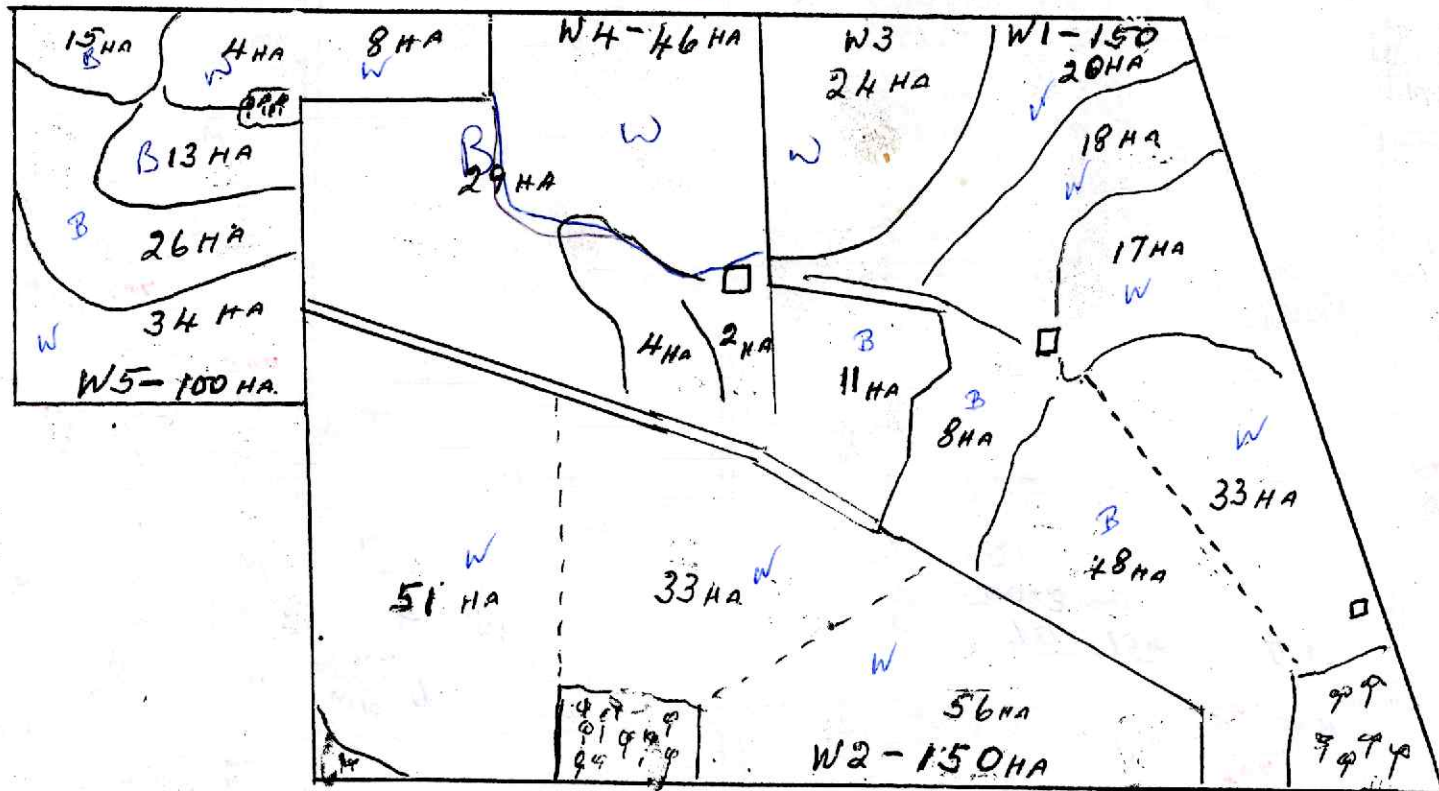 15 HA
B
4 HA
W
8 HA
W
W4-46 HA
W
W3
24 HA
W
W1-150
20 HA
W
18 HA
W
17 HA
W
B 13 HA
B
26 HA
34 HA
W
W5-100 HA.
B
HA
4 HA
2 HA
B
11 HA
B
8 HA
W
33 HA
B
48 HA
W
51 HA
33 HA W
W
56 HA
W2-150 HA